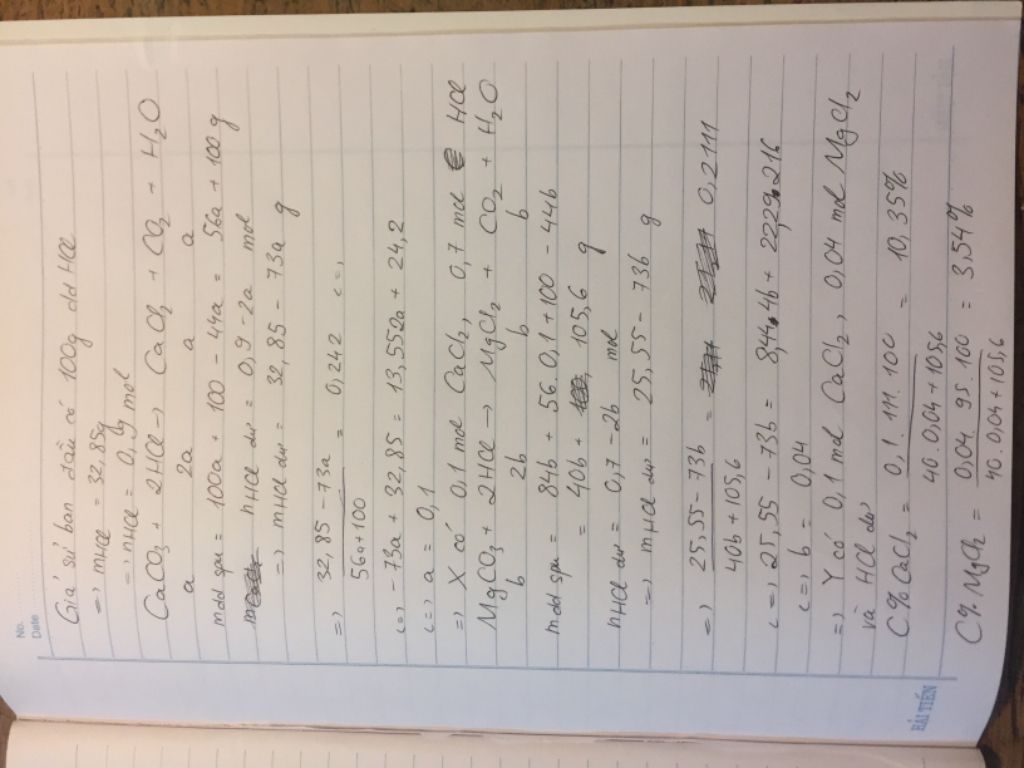 No.
Date
Giả sử ban đầu có 100g dd HCl
=> mHCl = 32,85g
=> nHCl = 0,9 mol
CaCO3 + 2HCl -> CaCl2 + CO2 + H2O
a 2a a a
mdd spu = 100a + 100 - 44a = 56a + 100 g
nHCl dư = 0,9 - 2a mol
=> mHCl dư = 32,85 - 73a g
=> 32,85 - 73a / 56a + 100 = 0,242 <=>
<=> -73a + 32,85 = 13,552a + 24,2
<=> a = 0,1
=> X có 0,1 mol CaCl2, 0,7 mol HCl
MgCO3 + 2HCl -> MgCl2 + CO2 + H2O
b 2b b b
mdd spu = 84b + 56.0,1 + 100 - 44b
= 40b + 105,6 g
nHCl dư = 0,7 - 2b mol
=> mHCl dư = 25,55 - 73b g
=> 25,55 - 73b / 40b + 105,6 = 0,2111
<=> 25,55 - 73b = 8,44.b + 22,29216
<=> b = 0,04
=> Y có 0,1 mol CaCl2, 0,04 mol MgCl2
và HCl dư
C% CaCl2 = 0,1.111.100 / 40.0,04 + 105,6 = 10,35%
C% MgCl2 = 0,04.95.100 / 40.0,04 + 105,6 = 3,54%
HẢI TIẾN